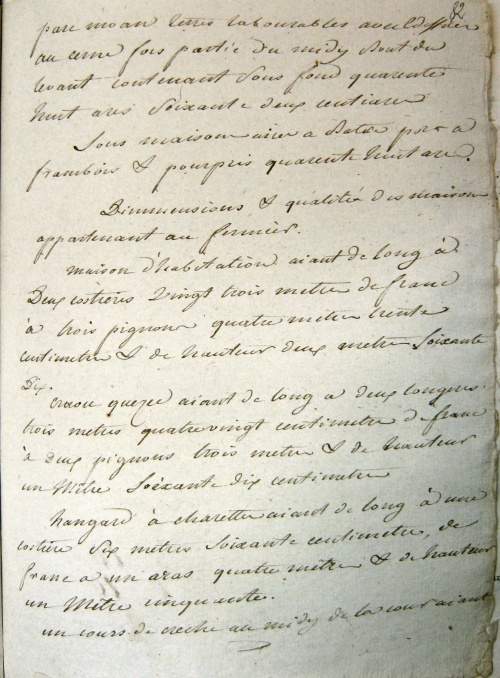 82
parc moan terres labourables avec
au cerne fois partie du midy dont du
levant contenant sous fond quarente
huit ares soixante deux centiares
Sous maison aire a Batre port a
frambois & pourpris quarente huit ares.
Dimmensions & qualités des maisons
appartenant au fermier.
maison d'habitation aiant de long à
Deux costières vingt trois metre de franc
à trois pignons quatre metre trente
centimetre & de hauteur deux metre soixante
Dix.
craou quezec aiant de long a deux longeres
trois metres quatrevingt centimetre de franc
à deux pignons trois metre & de hauteur
un Mêtre soixante dix centimetre
hangard à charette aiant de long à une
costière six metres soixante centimetre, de
franc a un aras quatre mètre & de hauteur
un Mètre cinquente.
un cours de creche au midy de la cour aiant